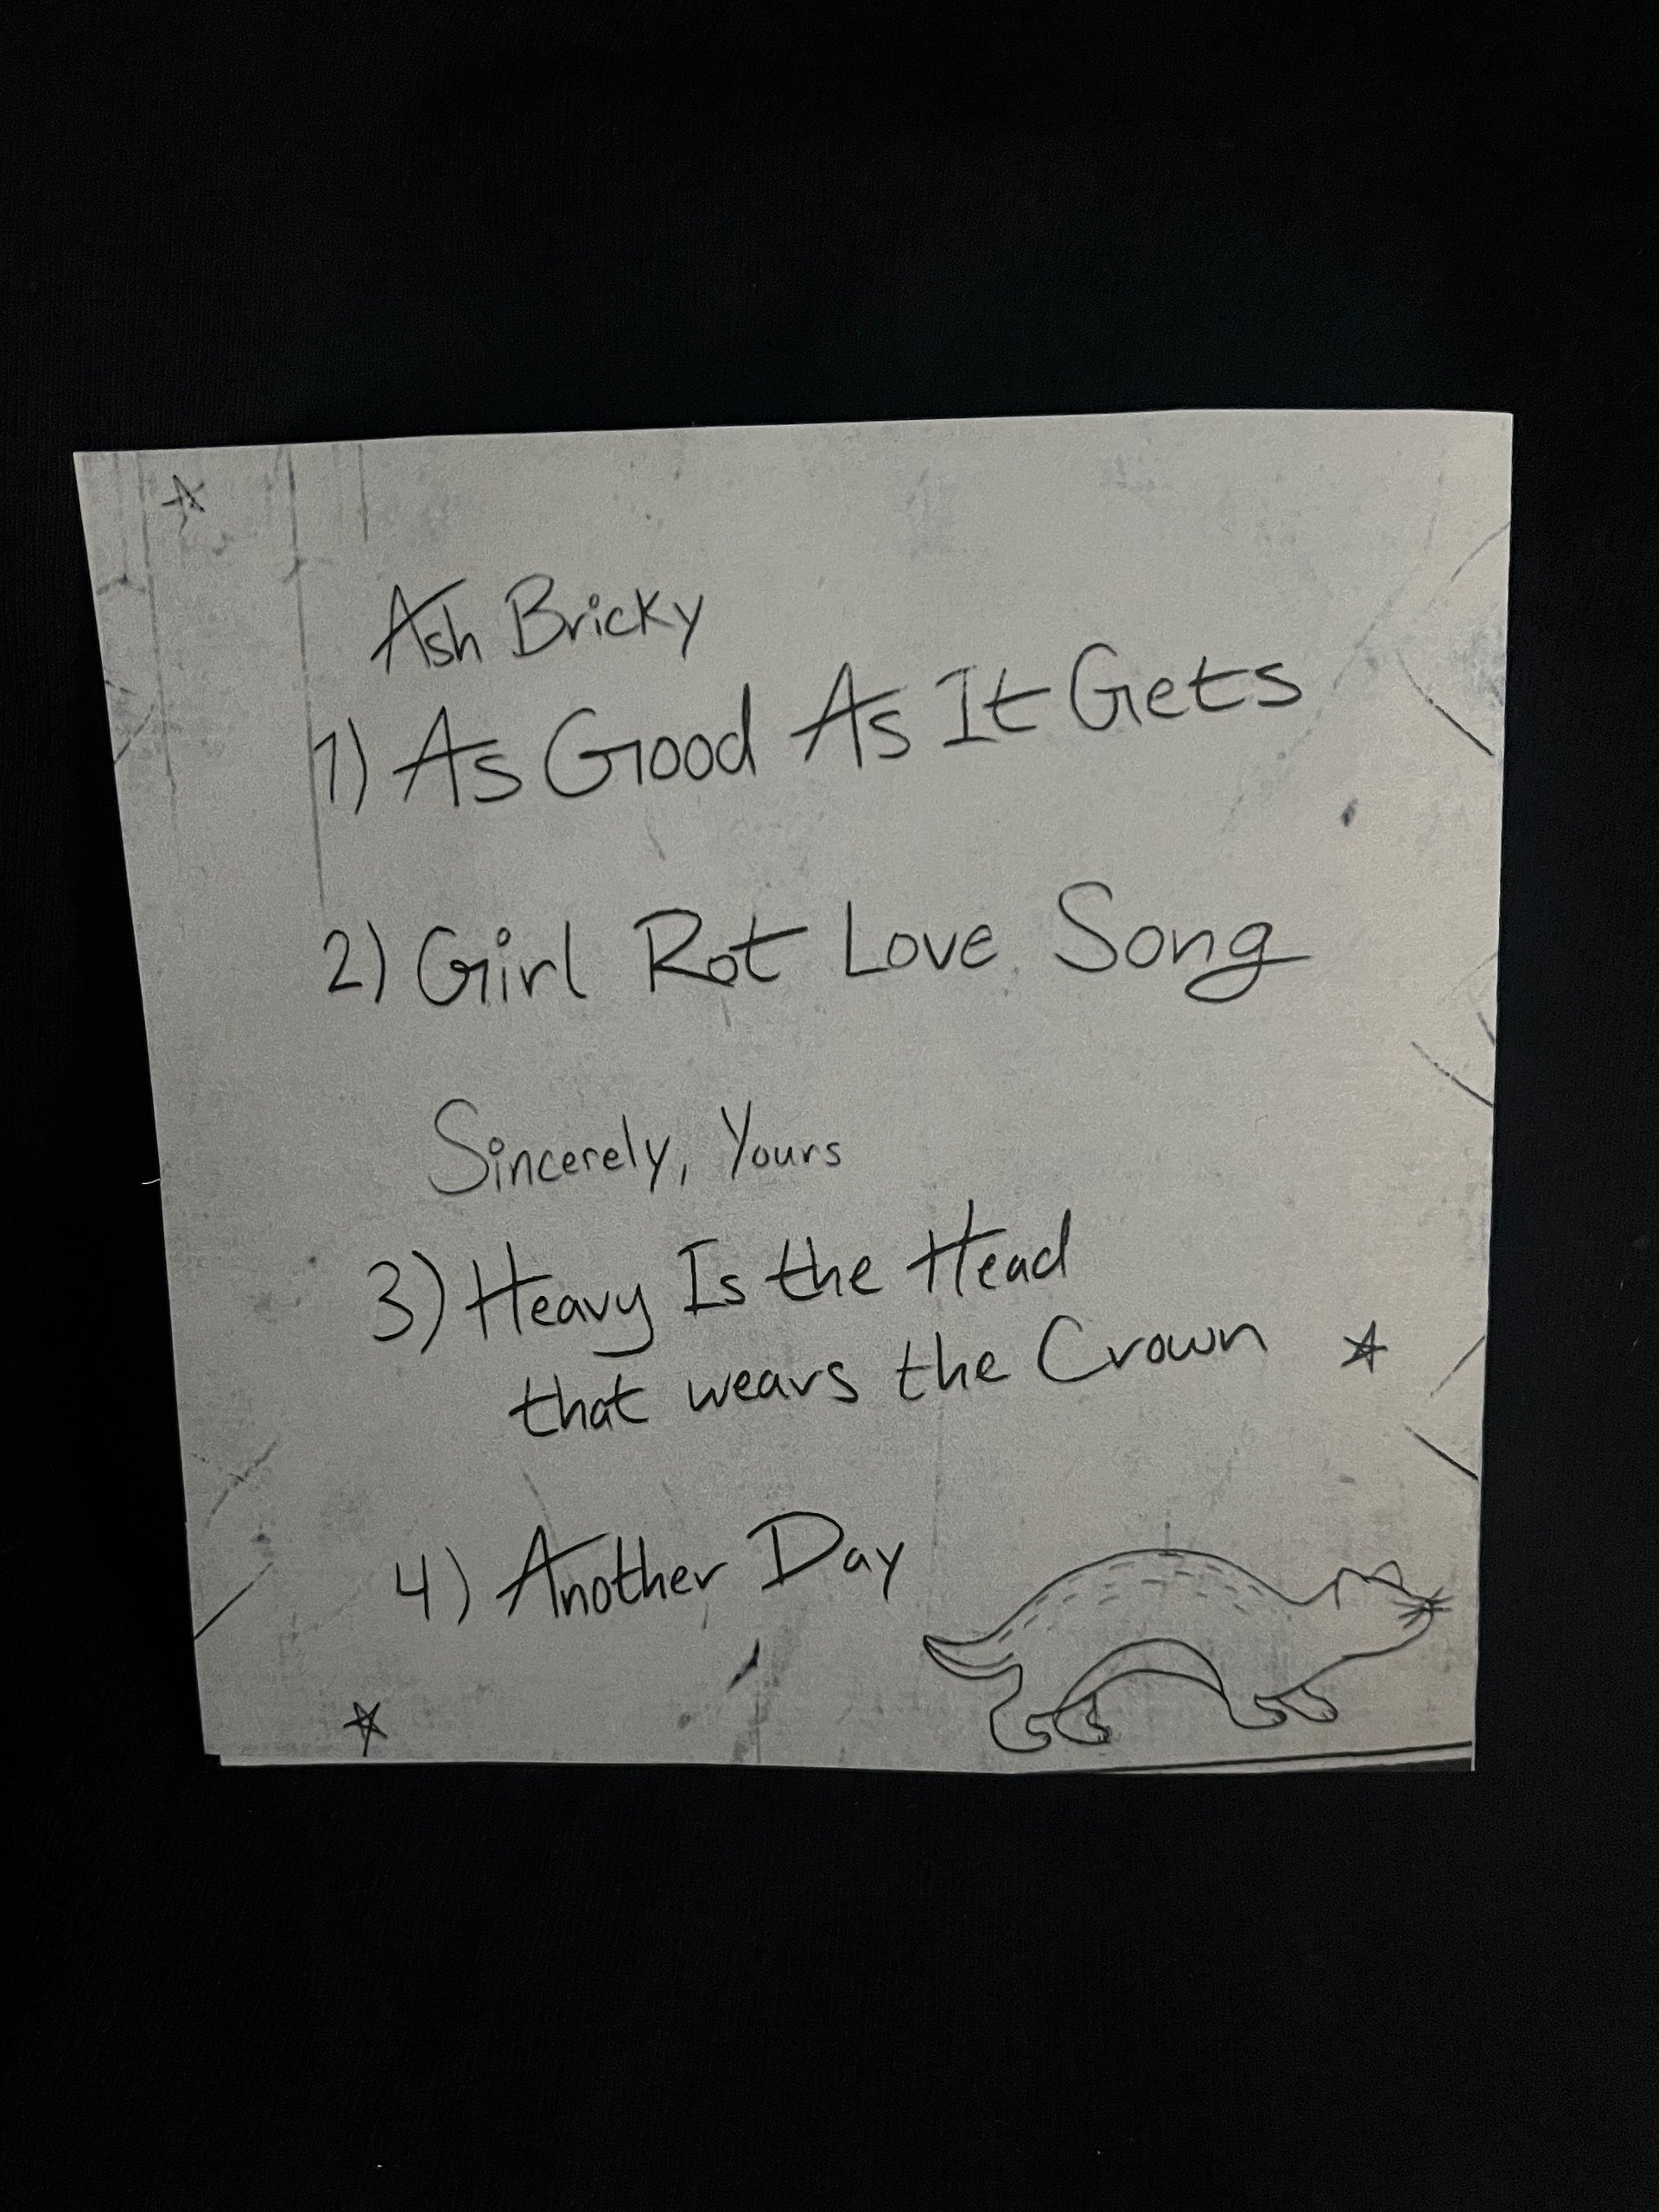 Ash Bricky
1) As Good As It Gets
2) Girl Rot Love Song
Sincerely, Yours
3) Heavy Is the Head
that wears the Crown
4) Another Day